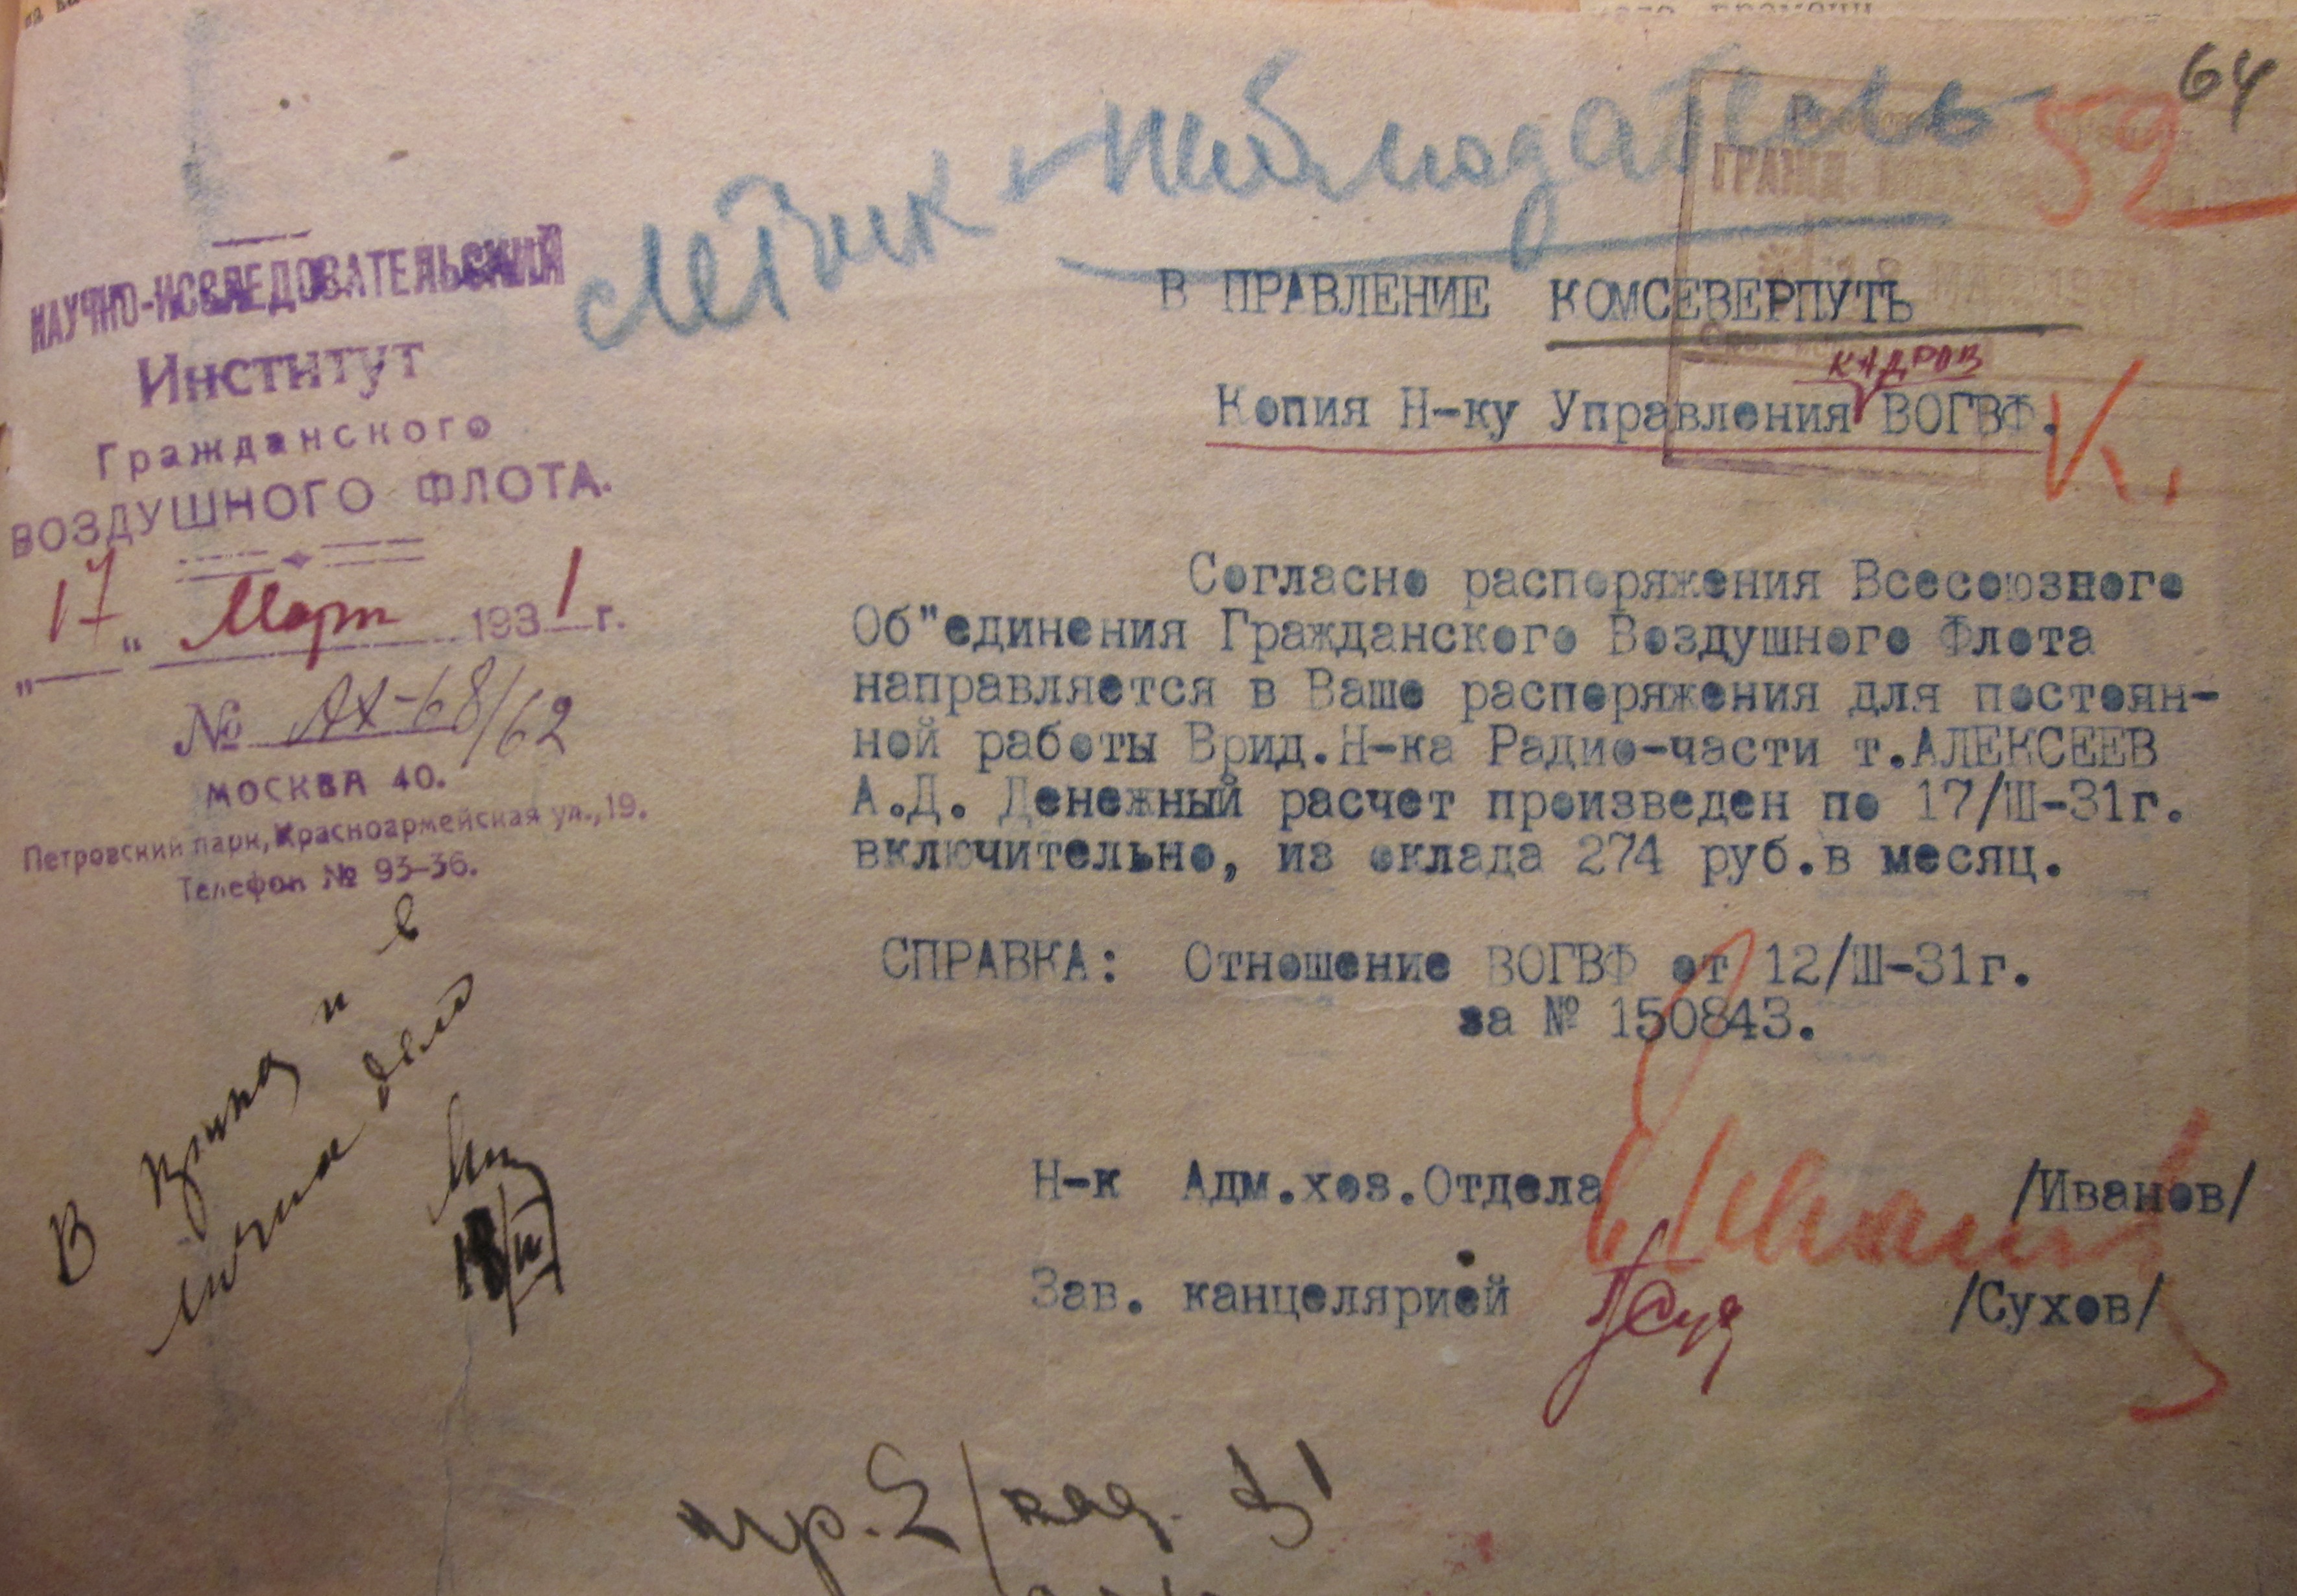 64
52
Летчик-наблюдатель
НАУЧНО-ИССЛЕДОВАТЕЛЬСКИЙ
Институт
Гражданского
ВОЗДУШНОГО ФЛОТА.
"17" Март 1931 г.
№ АХ-68/62
МОСКВА 40.
Петровский парк, Красноармейская ул., 19.
Телефон № 93-36.
В ПРАВЛЕНИЕ КОМСЕВЕРПУТЬ
КАДРОВ
Копия Н-ку Управления ВОГВФ.
К.
Согласно распоряжения Всесоюзного
Об"единения Гражданского Воздушного Флота
направляется в Ваше распоряжения для постоян-
ной работы Врид.Н-ка Радио-части т.АЛЕКСЕЕВ
А.Д. Денежный расчет произведен по 17/Ш-31г.
включительно, из оклада 274 руб.в месяц.
СПРАВКА: Отношение ВОГВФ от 12/Ш-31г.
за № 150843.
Н-к Адм.хоз.Отдела /Иванов/
Зав. канцелярией /Сухов/
В приказ и в
личное дело
18/III
пр. 2/кад. § 1